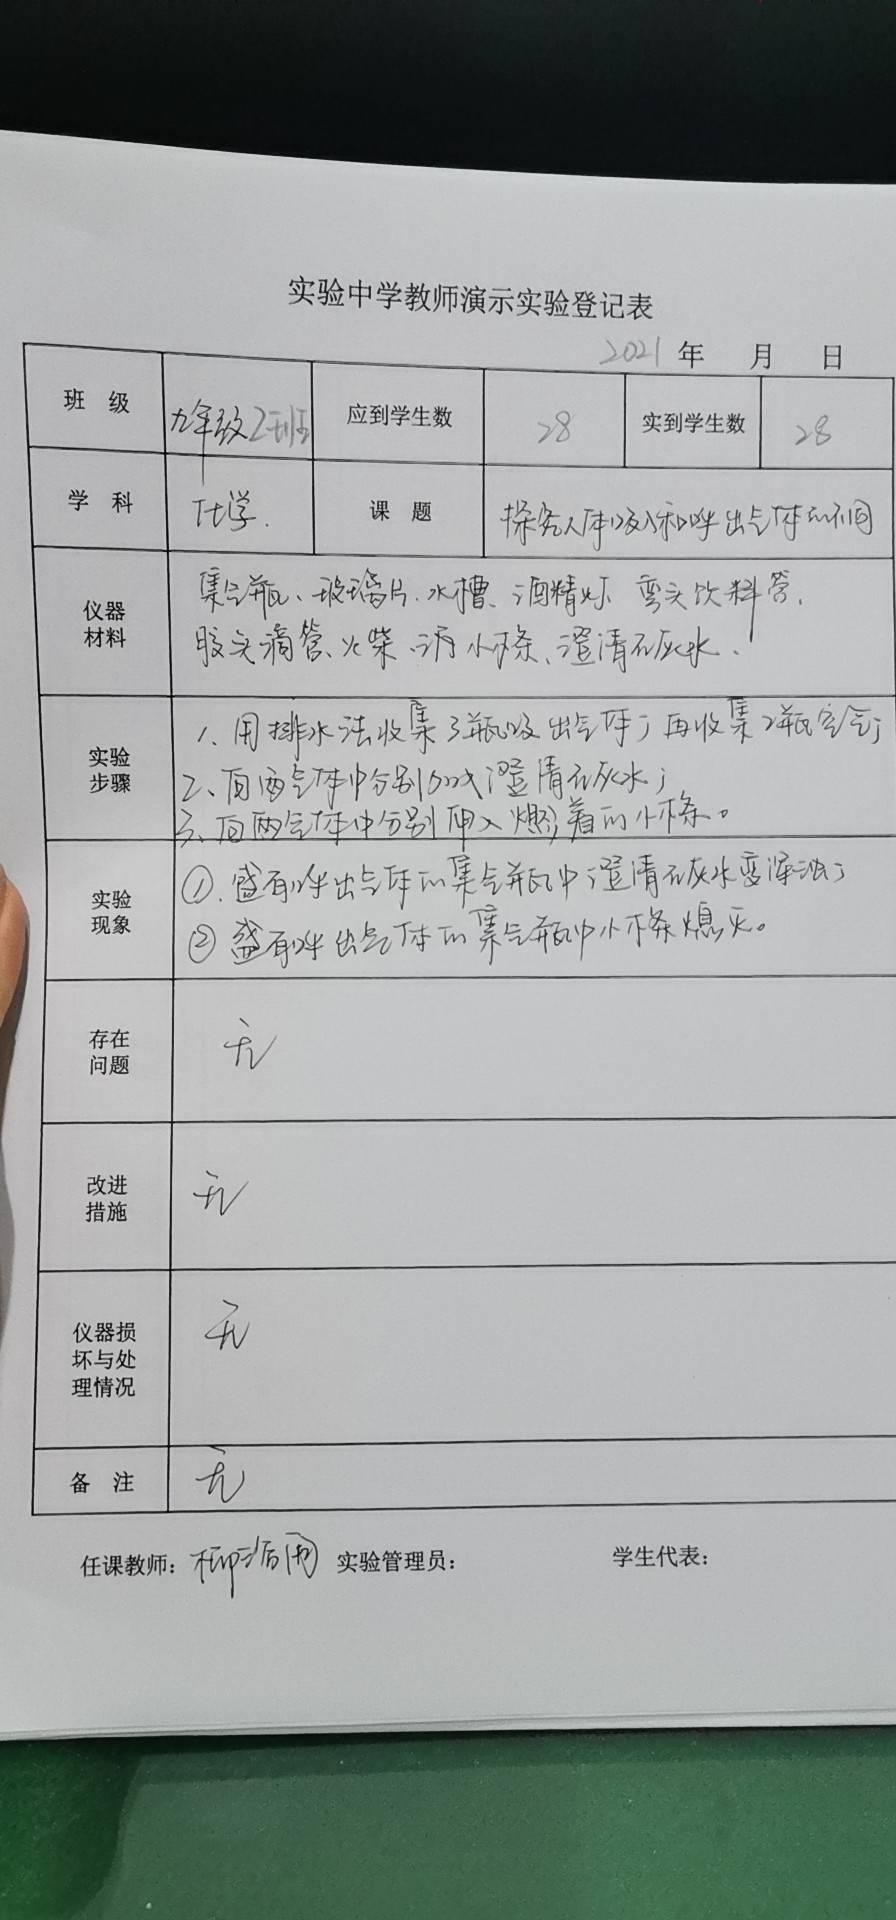 实验中学教师演示实验登记表
2021 年 月 日
班 级 九年级2班 应到学生数 28 实到学生数 28
学 科 化学. 课 题 探究人体吸入和呼出气体的不同
仪器材料 集气瓶、玻璃片、水槽、酒精灯 弯头饮料管、
胶头滴管、火柴、小木条、澄清石灰水、
实验步骤 1、用排水法收集3瓶吸出气体；再收集2瓶空气；
2、向两气体中分别加入澄清石灰水；
3、向两气体中分别伸入燃着的小木条。
实验现象 ①.盛有呼出气体的集气瓶中澄清石灰水变浑浊；
②盛有呼出气体的集气瓶中小木条熄灭。
存在问题 无
改进措施 无
仪器损坏与处理情况 无
备 注 无
任课教师： 实验管理员： 学生代表：